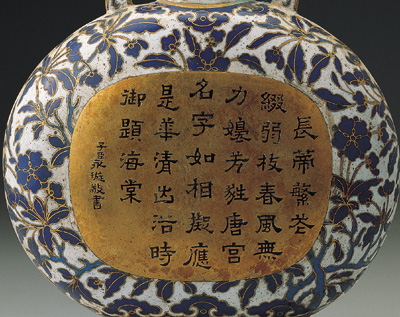 長蒂繁花
綴弱枝春風無
力嬝芳姿唐宮
名字如相擬應
是華清出浴時
御題海棠
子臣永璇敬書